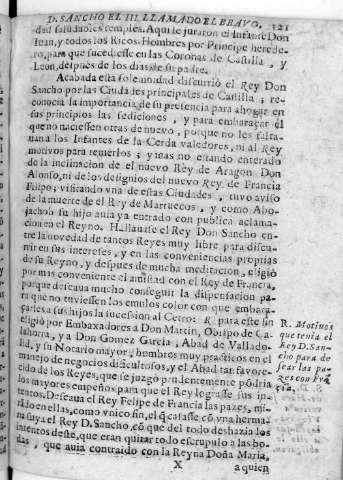 D. SANCHO EL III. LLAMADO EL BRAVO. 321
dad saludables templea. Aqui le juraron el Infante Don
Iuan, y todos los Ricos-Hombres por Principe herede-
ro, para que sucediesse en las Coronas de Castilla, y
Leon, despues de los dias de su padre.
Acabada esta solemnidad discurrió el Rey Don
Sancho por las Ciudades principales de Castilla; re-
conocia la importancia de su presencia para ahogar en
sus principios las sediciones, y para embaraçar el
que no naciessen otras de nuevo, porque no les falta-
uana los Infantes de la Cerda valedores, ni al Rey
motivos para temerlos; y mas no estando enterado
de la inclinacion de el nuevo Rey de Aragon Don
Alonso, ni de los designios del nuevo Rey de Francia
Filipo; visitando vna de estas Ciudades, tuvo aviso
de la muerte de el Rey de Marruecos, y como Abo-
jacob su hijo auia ya entrado con publica aclama-
cion en el Reyno. Hallauase el Rey Don Sancho en-
tre la novedad de tantos Reyes muy libre para discu-
rrir en sus intereses, y en las conveniencias proprias
de su Reyno, y despues de mucha meditacion, eligió
por mas conveniente el amistad con el Rey de Francia,
porque deseaua mucho conseguir la dispensacion pa-
ra que no tuviessen los emulos color con que embara-
çarles a sus hijos la sucession al Cetro. R para este fin
eligió por Embaxadores a Don Martin, Obispo de Ca-
lahorra, y a Don Gomez Garcia, Abad de Vallado-
lid, y su Notario mayor, hombres muy practicos en el
manejo de negocios dificultosos, y el Abad tan favore-
cido de los Reyes, que se juzgó prudentemente podria
los mayores empeños para que el Rey lograsse sus in-
tentos. Deseaua el Rey Felipe de Francia las pazes, mi-
rado en ellas, como vnico fin, el q̃ casasse cõ vna herma-
na suya el Rey D. Sancho, cõ que del todo deshazia los
intentos deste, que eran quitar todo escrupulo a las bo-
das, que auia contraido con la Reyna Doña Maria,
X a quien
R. Motivos
que tenia el
Rey D. San-
cho para de
sear las pa-
zes con Frã
cia.